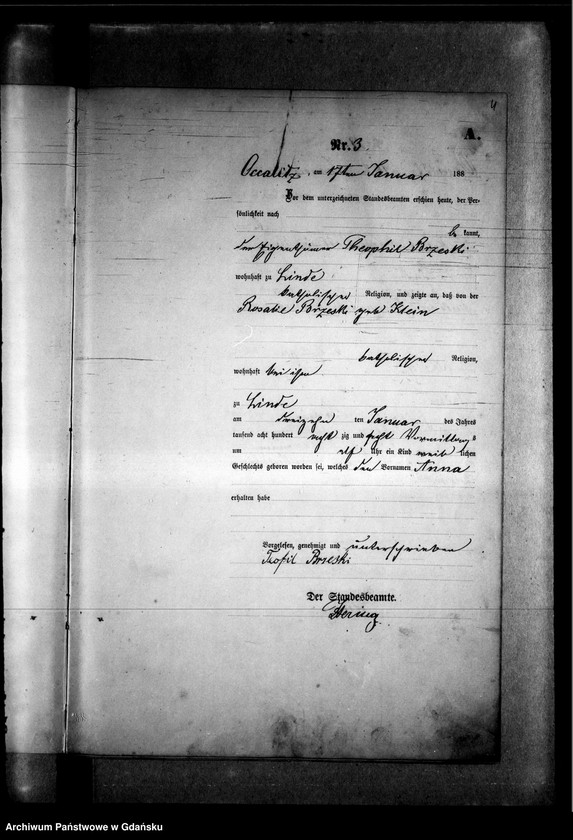 4
A.
Nr. 3
Occalitz, am 17ten Januar 188
Vor dem unterzeichneten Standesbeamten erschien heute, der Per-
sönlichkeit nach
be kannt,
der Eigenthümer Theophil Brzeski
wohnhaft zu Linde
katholischer Religion, und zeigte an, daß von der
Rosalie Brzeski geb Klein
katholischer Religion,
wohnhaft bei ihm
zu Linde
am dreizehn ten Januar des Jahres
tausend acht hundert acht zig und sechs Vormittags
um elf Uhr ein Kind weib lichen
Geschlechts geboren worden sei, welches den Vornamen Anna
erhalten habe
Vorgelesen, genehmigt und unterschrieben
Teofil Brzeski
Der Standesbeamte.
Hering
Archiwum Państwowe w Gdańsku